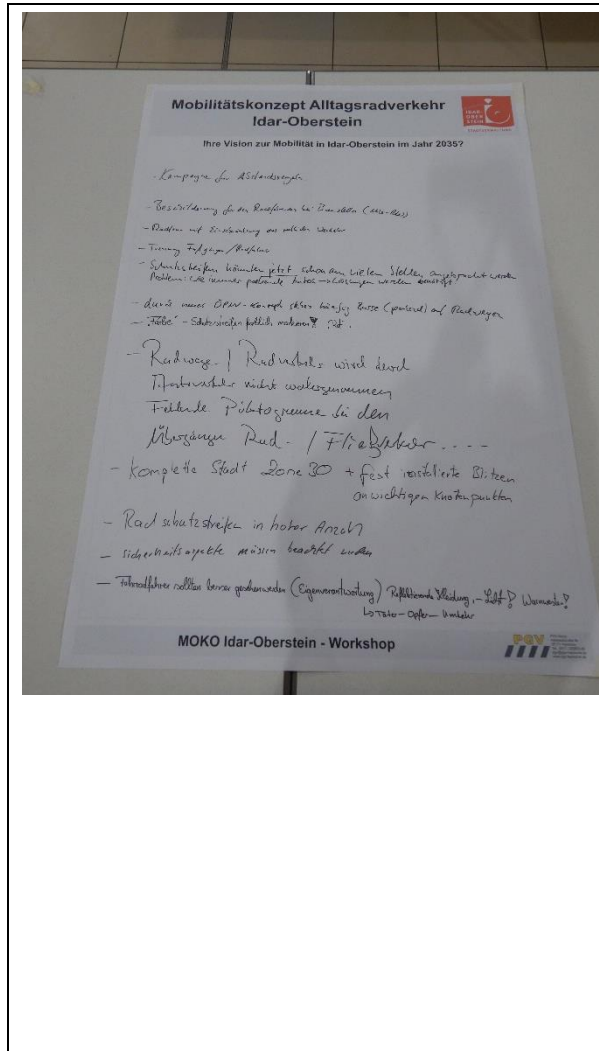 Mobilitätskonzept Alltagsradverkehr
Idar-Oberstein
IDAR-
OBER
STEIN
Ihre Vision zur Mobilität in Idar-Oberstein im Jahr 2035?
- Kampagne für Abstandsregeln
- Beschilderung für den Radfahrer bei Baustellen
- Radfahrer mit
- Trennung Fußgänger/Radfahrer
- Schutzstreifen könnten jetzt schon an vielen Stellen angebracht werden
Problem: werden
- durch neues ÖPNV-Konzept stehen häufig Busse (parkend) auf Radwegen
- "Farbe" - Schutzstreifen farblich markieren! Rot.
- Radwege / Radverkehr wird durch
nicht wahrgenommen
Fehlende Piktogramme bei den
Übergänge Rad- / Fließverkehr ....
- Komplette Stadt Zone 30 + fest installierte Blitzer
an wichtigen Knotenpunkten
- Radschutzstreifen in hoher Anzahl
- Sicherheitsaspekte müssen beachtet werden
- Fahrradfahrer sollten besser gesehen werden (Eigenverantwortung) Reflektierende Kleidung, - Licht!
↳ Täter - Opfer - Umkehr
MOKO Idar-Oberstein - Workshop
PGV